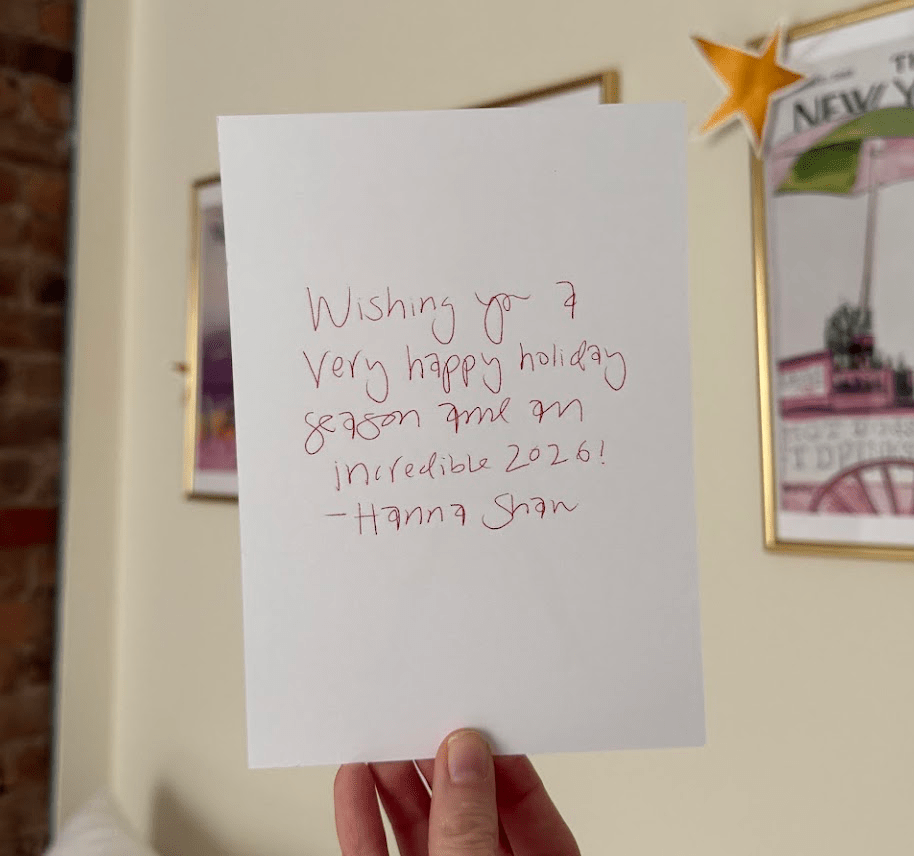 Wishing you a
very happy holiday
season and an
incredible 2026!
-Hanna Shaw
NEW Y